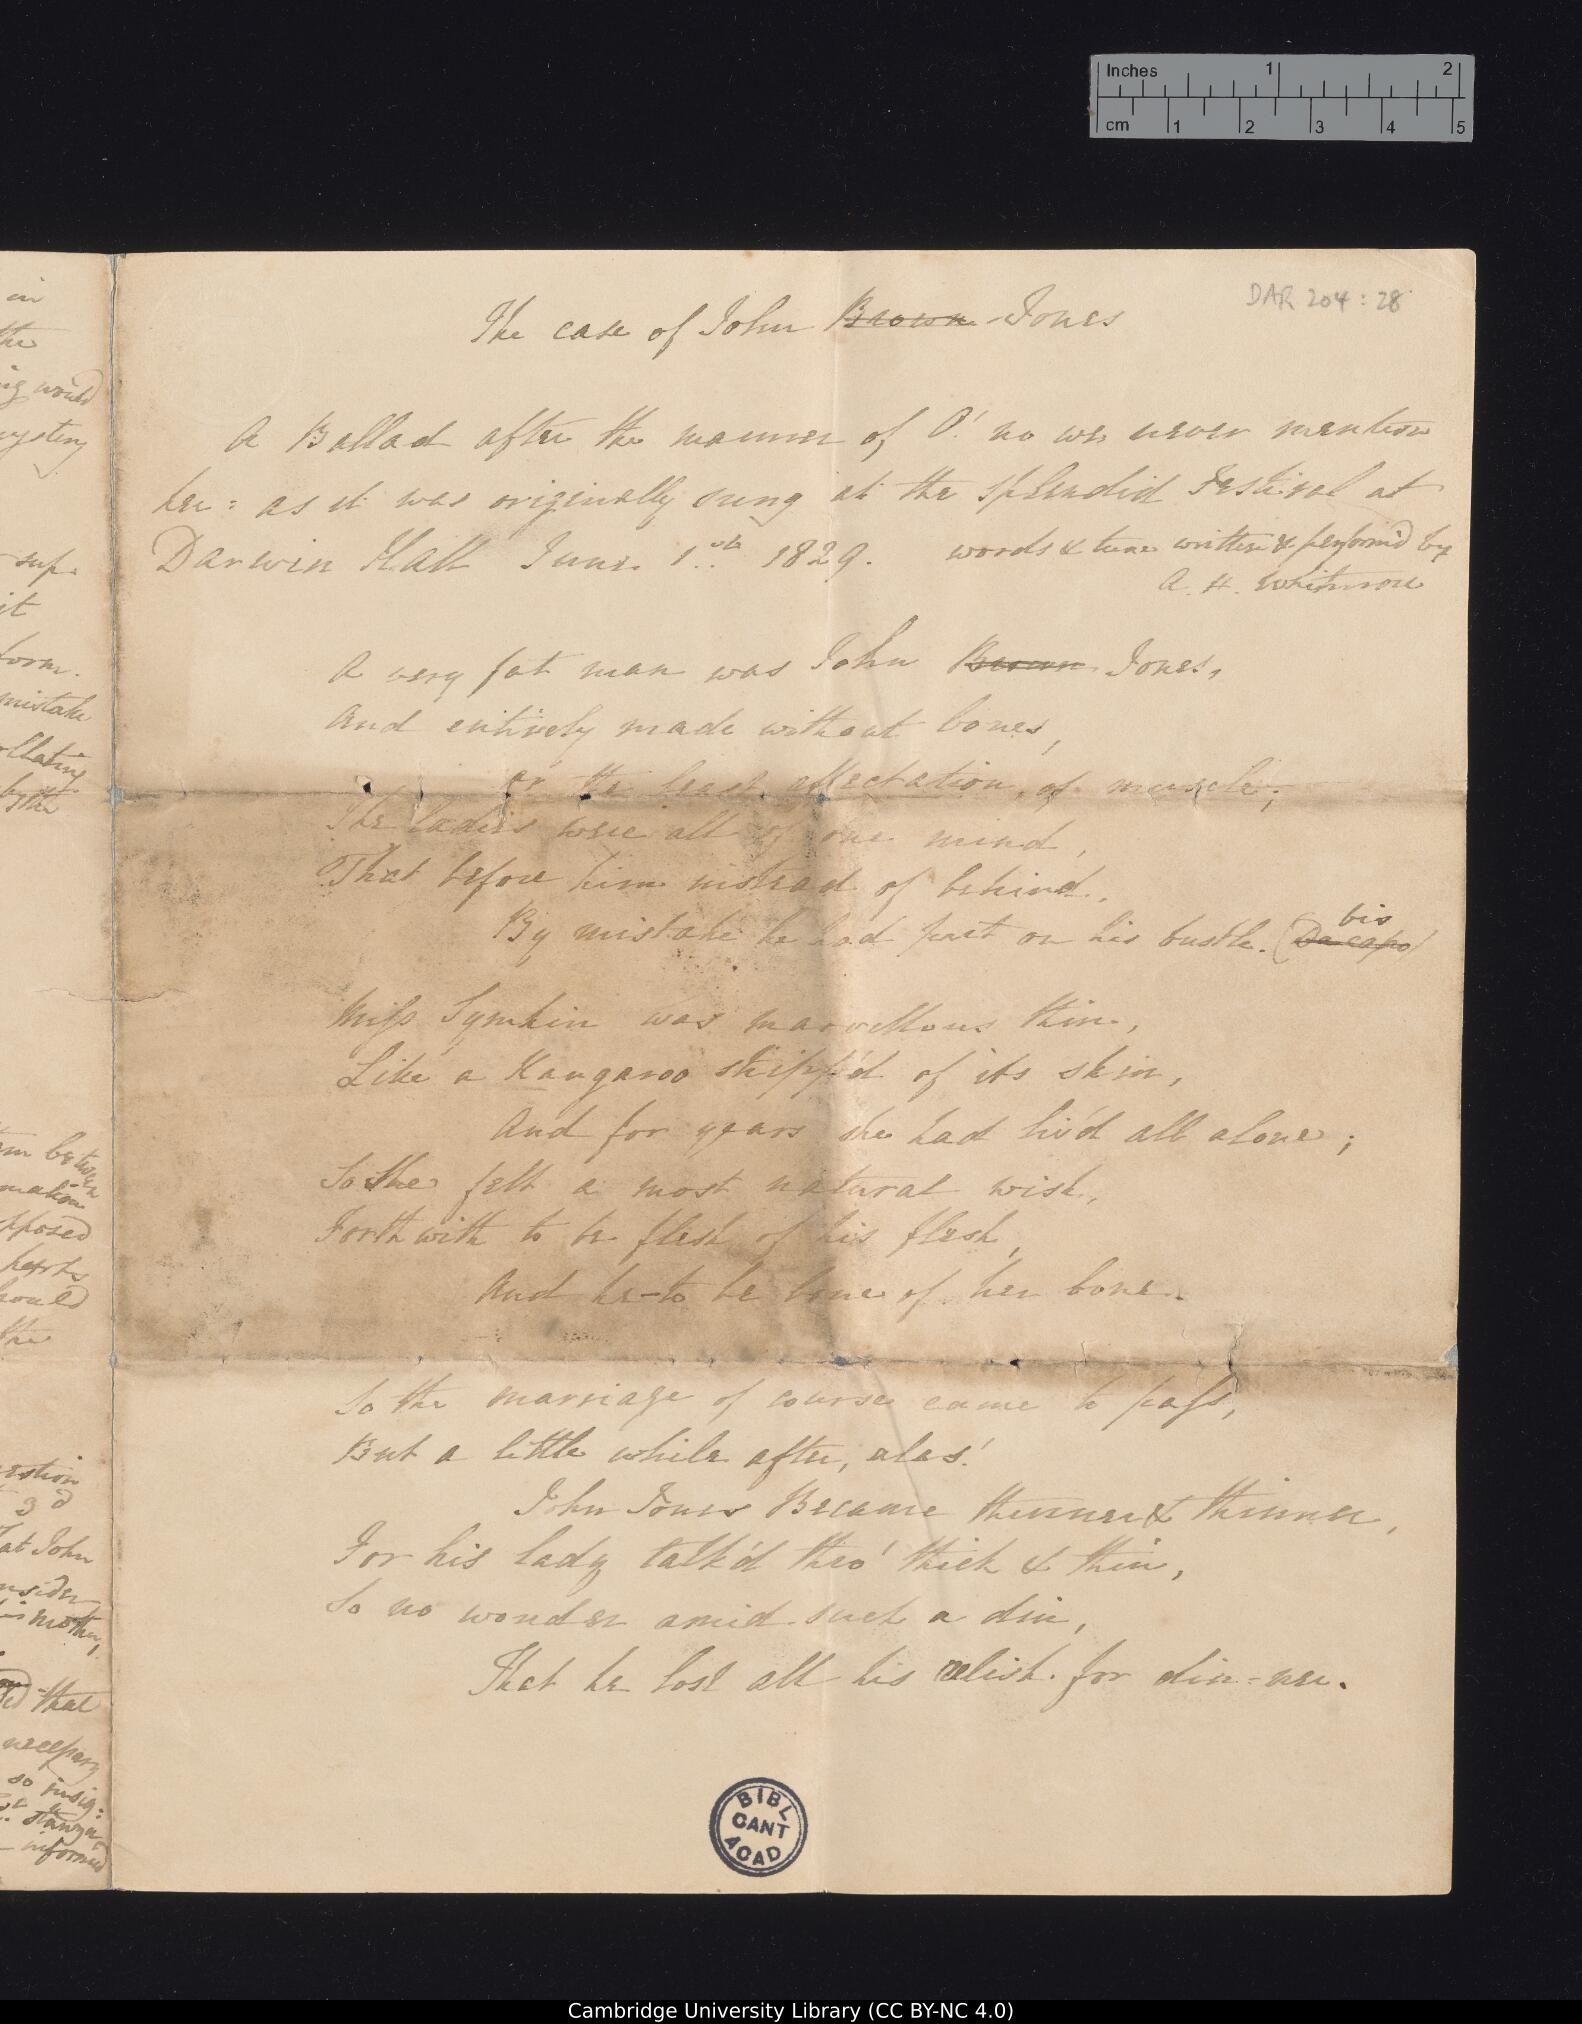 Inches 1 2
cm 1 2 3 4 5
DAR 204:28
The case of John Brown Jones
A Ballad after the manner of O! no we never mention
her: as it was originally sung at the splendid Festival at
Darwin Hall June 1st 1829. words & tune written & perform'd by
A. H. Whitmore
A very fat man was John Brown Jones,
And entirely made without bones,
or the least affectation of muscle;
The ladies were all of one mind,
That before him instead of behind,
bis
By mistake he had put on his bustle. (Da capo)
Miss Symkin was marvellous thin,
Like a Kangaroo stripp'd of its skin,
And for years she had liv'd all alone;
So she felt a most natural wish,
Forthwith to be flesh of his flesh,
And he-to be bone of her bone.
So the marriage of course came to pass,
But a little while after, alas!
John Jones Became thinner & thinner,
For his lady talk'd thro' thick & thin,
So no wonder amid such a din,
That he lost all his relish for din-ner.
BIBL
CANT
ACAD
in
the
would
sup-
it
form.
mistake
by the
between
hearts
the
3d
at John
his mother,
that
necessary
so insig:
stanza,
informed
Cambridge University Library (CC BY-NC 4.0)